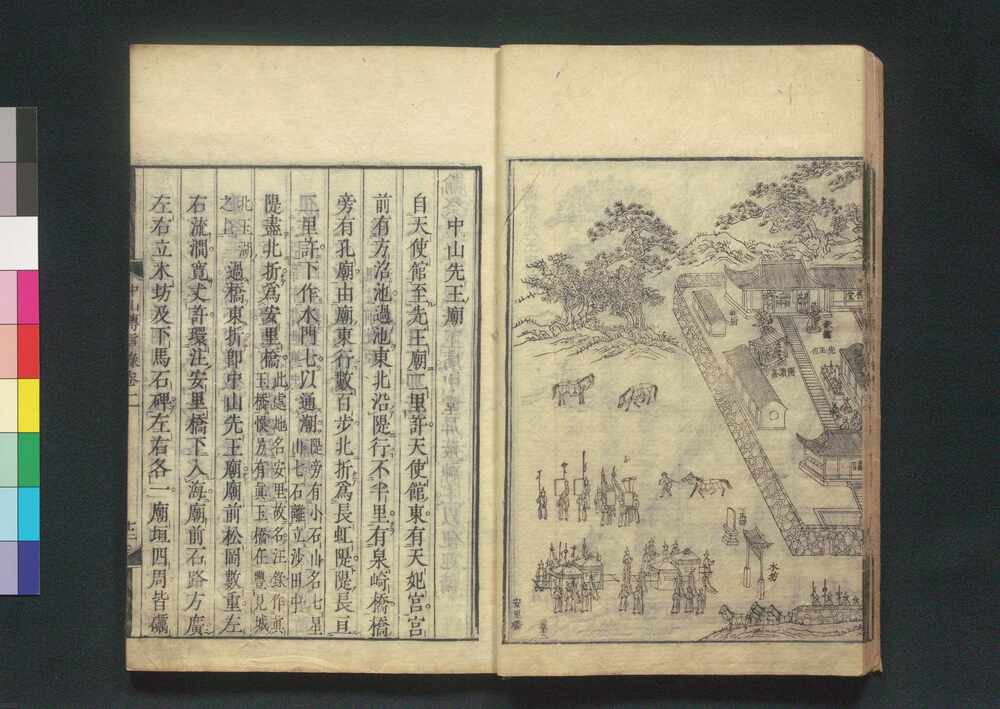 中山先王廟
自天使館至先王廟三里許天使館東有天妃宮宮
前有方沼池過池東北沿隄行不半里有泉崎橋橋
旁有孔廟由廟東行數百步北折爲長虹隄隄長亘
里許下作水門七以通潮隄旁有小石山名七星
山七石離立沙田中
隄盡北折爲安里橋此處地名安里故名汪錄作眞
玉橋悞居有眞玉橋在豐見城
北王湖
之上過橋東折卽中山先王廟廟前松岡數重左
右流澗寬丈許環注安里橋下入海廟前石路方廣
左右立木坊及下馬石碑左右各一廟垣四周皆礪
中山傳信錄卷二
安里橋
木坊
先王廟